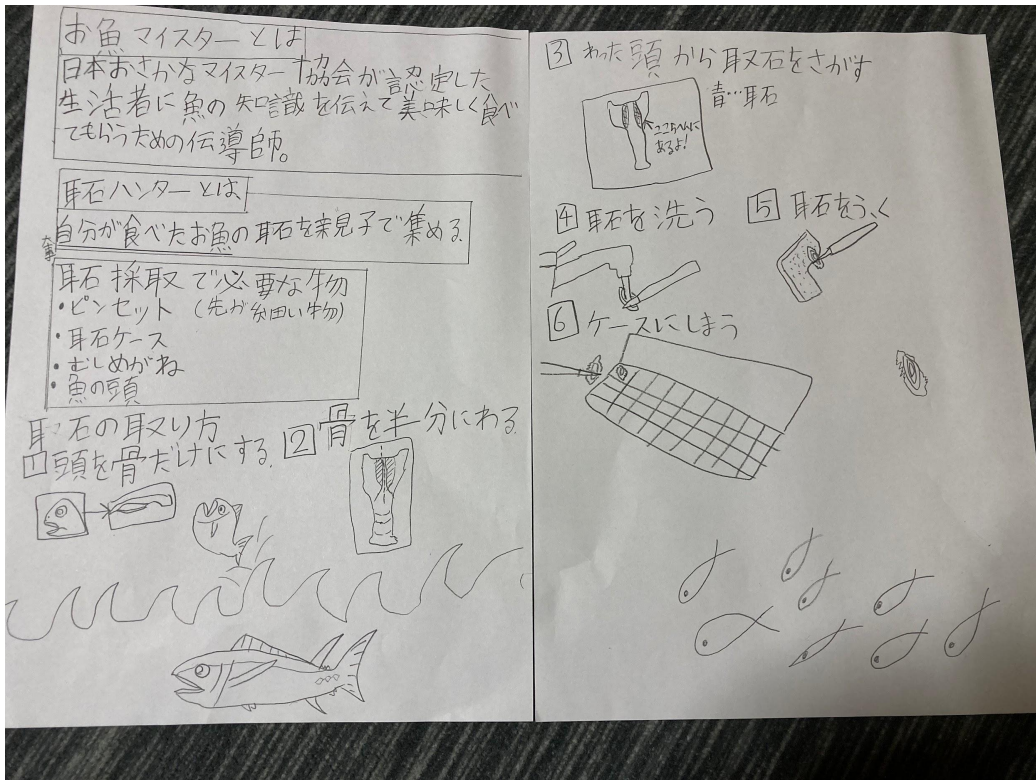 お魚マイスターとは
日本おさかなマイスター協会が認定した
生活者に魚の知識を伝えて美味しく食べ
てもらうための伝導師。
耳石ハンターとは
自分が食べたお魚の耳石を親子で集める。
耳石採取で必要な物
・ピンセット (先が細い物)
・耳石ケース
・むしめがね
・魚の頭
耳石の取り方
1 頭を骨だけにする。
2 骨を半分にわる。
3 わった頭から耳石をさがす
青…耳石
ここらへんに
あるよ!
4 耳石を洗う
5 耳石をふく
6 ケースにしまう